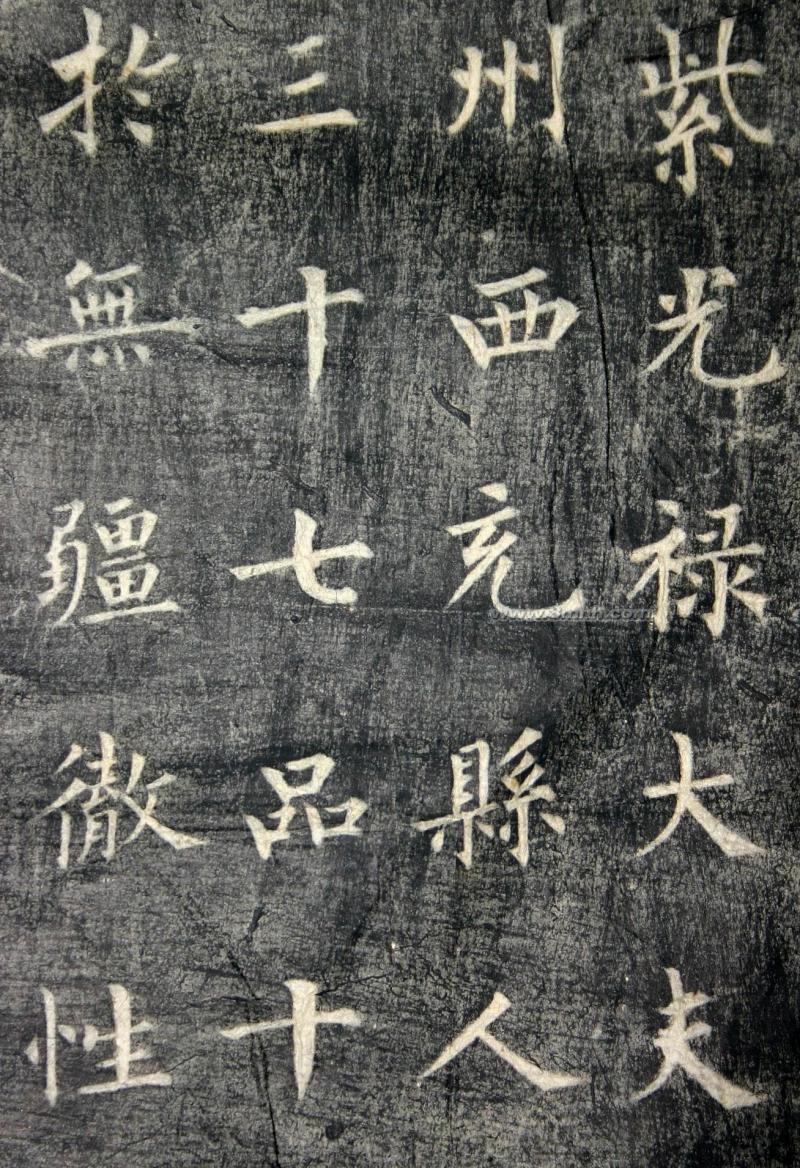 紫光禄大夫
州西充縣人
三十七品十
於無疆徹性